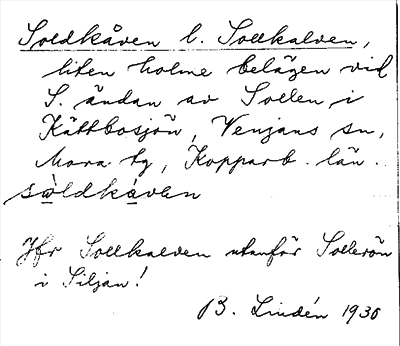 Soldkåven l. Sollkalven,
liten holme belägen vid
S. ändan av Sollen i
Kättbosjön, Venjans sn,
Mora tg, Kopparb. län.
Jfr Sollkalven utanför Sollerön
i Siljan!
B. Lindén 1930